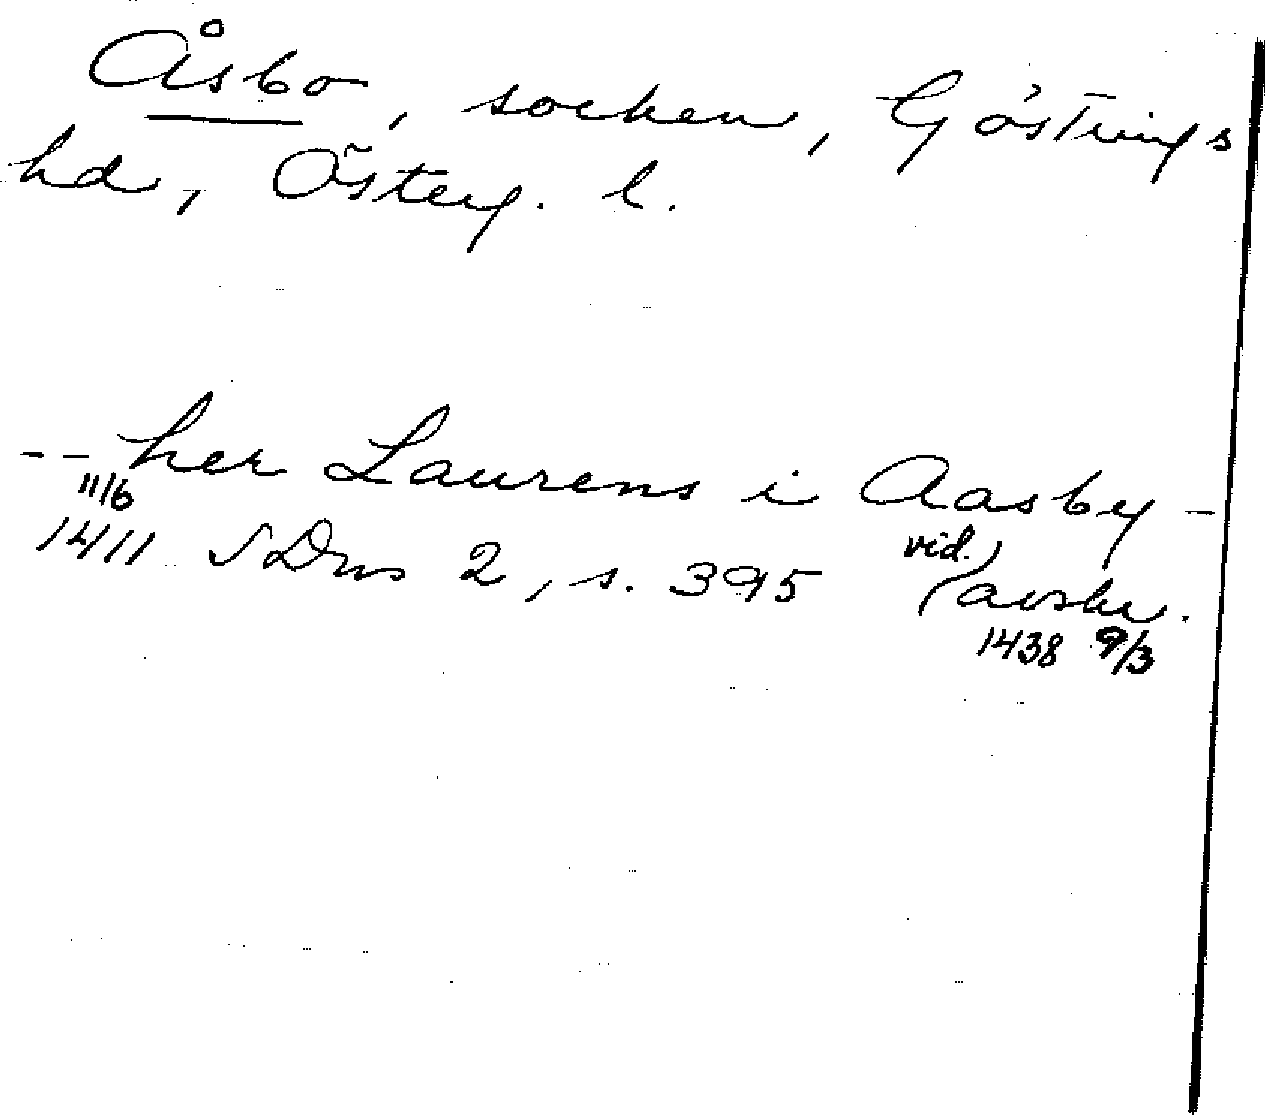 Åsbo, socken, Göstrings
hd, Österg. l.
-- her Laurens i Aasby -
11/6
1411 SDns 2, s. 395 (vid. avskr.
1438 9/3